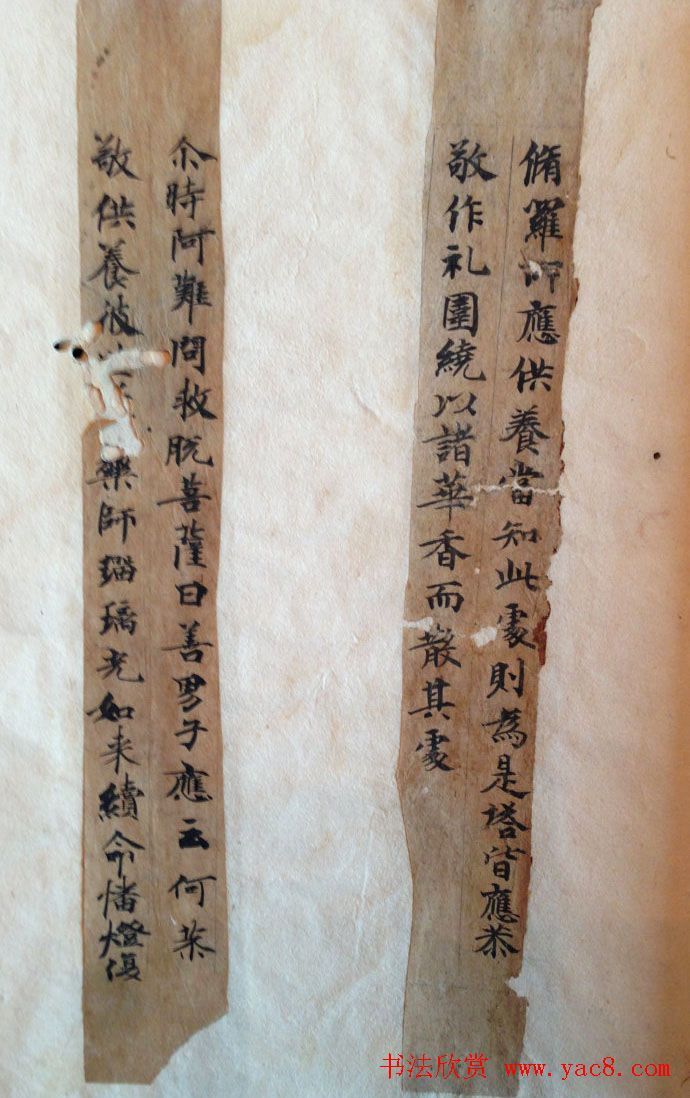 脩羅所應供養當知此處則為是塔皆應恭
敬作礼圍繞以諸華香而散其處
尒時阿難問救脫菩薩曰善男子應云何恭
敬供養彼世藥師瑠璃光如来續命幡燈復
书法欣赏 www.yac8.com